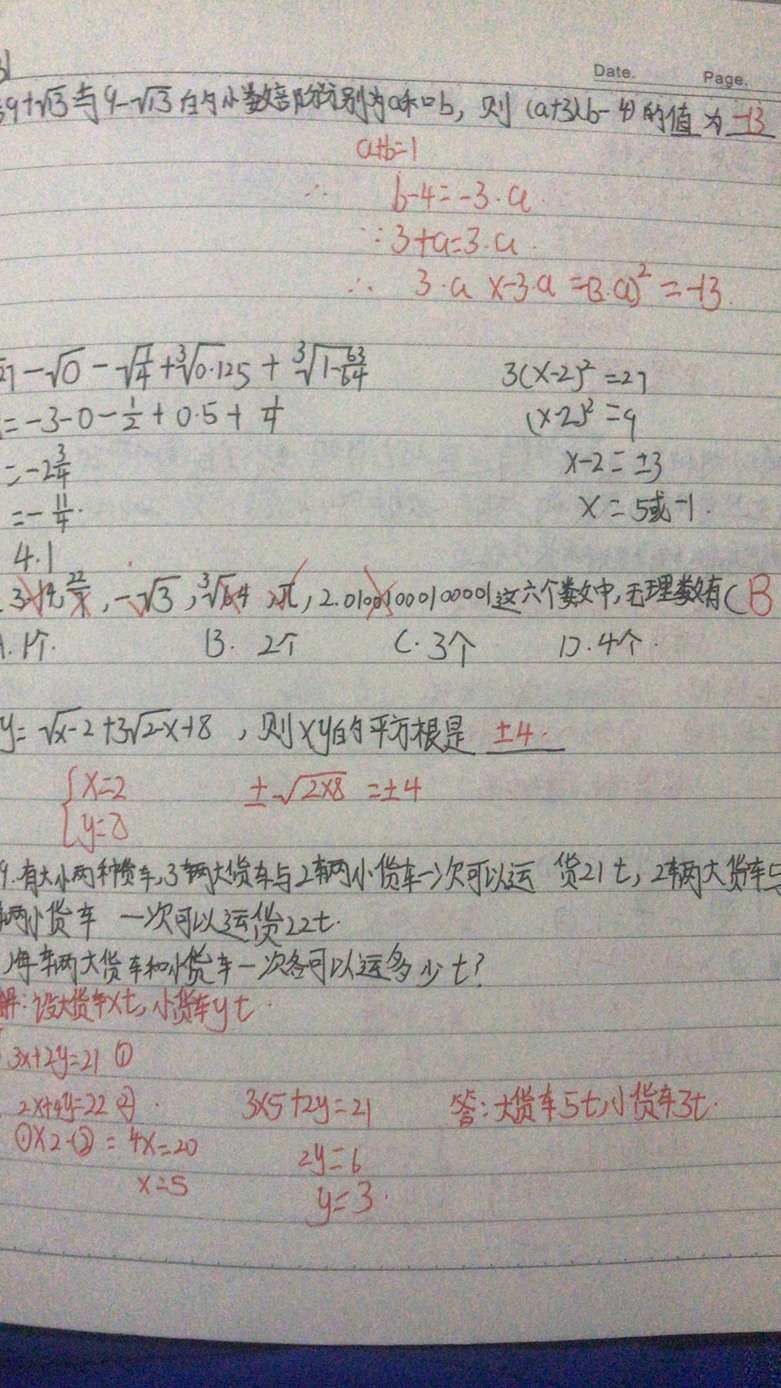 Date. Page.
9+√13与9-√13的小数部分分别为a和b，则(a+3)(b-4)的值为 -13
a+b=1
∴ b-4=-3·a
∵3+a=3·a
∴ 3·a×-3·a=-(3·a)²=-13
-√0-√1/4+³√0.125+³√1-63/64
=-3-0-1/2+0.5+1/4
=-2 3/4
=-11/4.
3(x-2)²=27
(x-2)²=9
x-2=±3
x=5或-1.
4.1
3.14, 22/7, -√3, ³√64, π, 2.01001000100001这六个数中,无理数有(B
1个. B. 2个 C. 3个 D. 4个.
y=√x-2+3√2-x+8，则xy的平方根是 ±4.
{x=2
y=8
±√2×8=±4
9.有大小两种货车,3辆大货车与2辆小货车一次可以运 货21t, 2辆大货车与
辆小货车 一次可以运货22t.
每车辆大货车和小货车一次各可以运多少t?
解:设大货车xt,小货车yt
3x+2y=21 ①
2x+4y=22 ②
①×2-②=4x=20
x=5
3×5+2y=21
2y=6
y=3.
答:大货车5t,小货车3t.